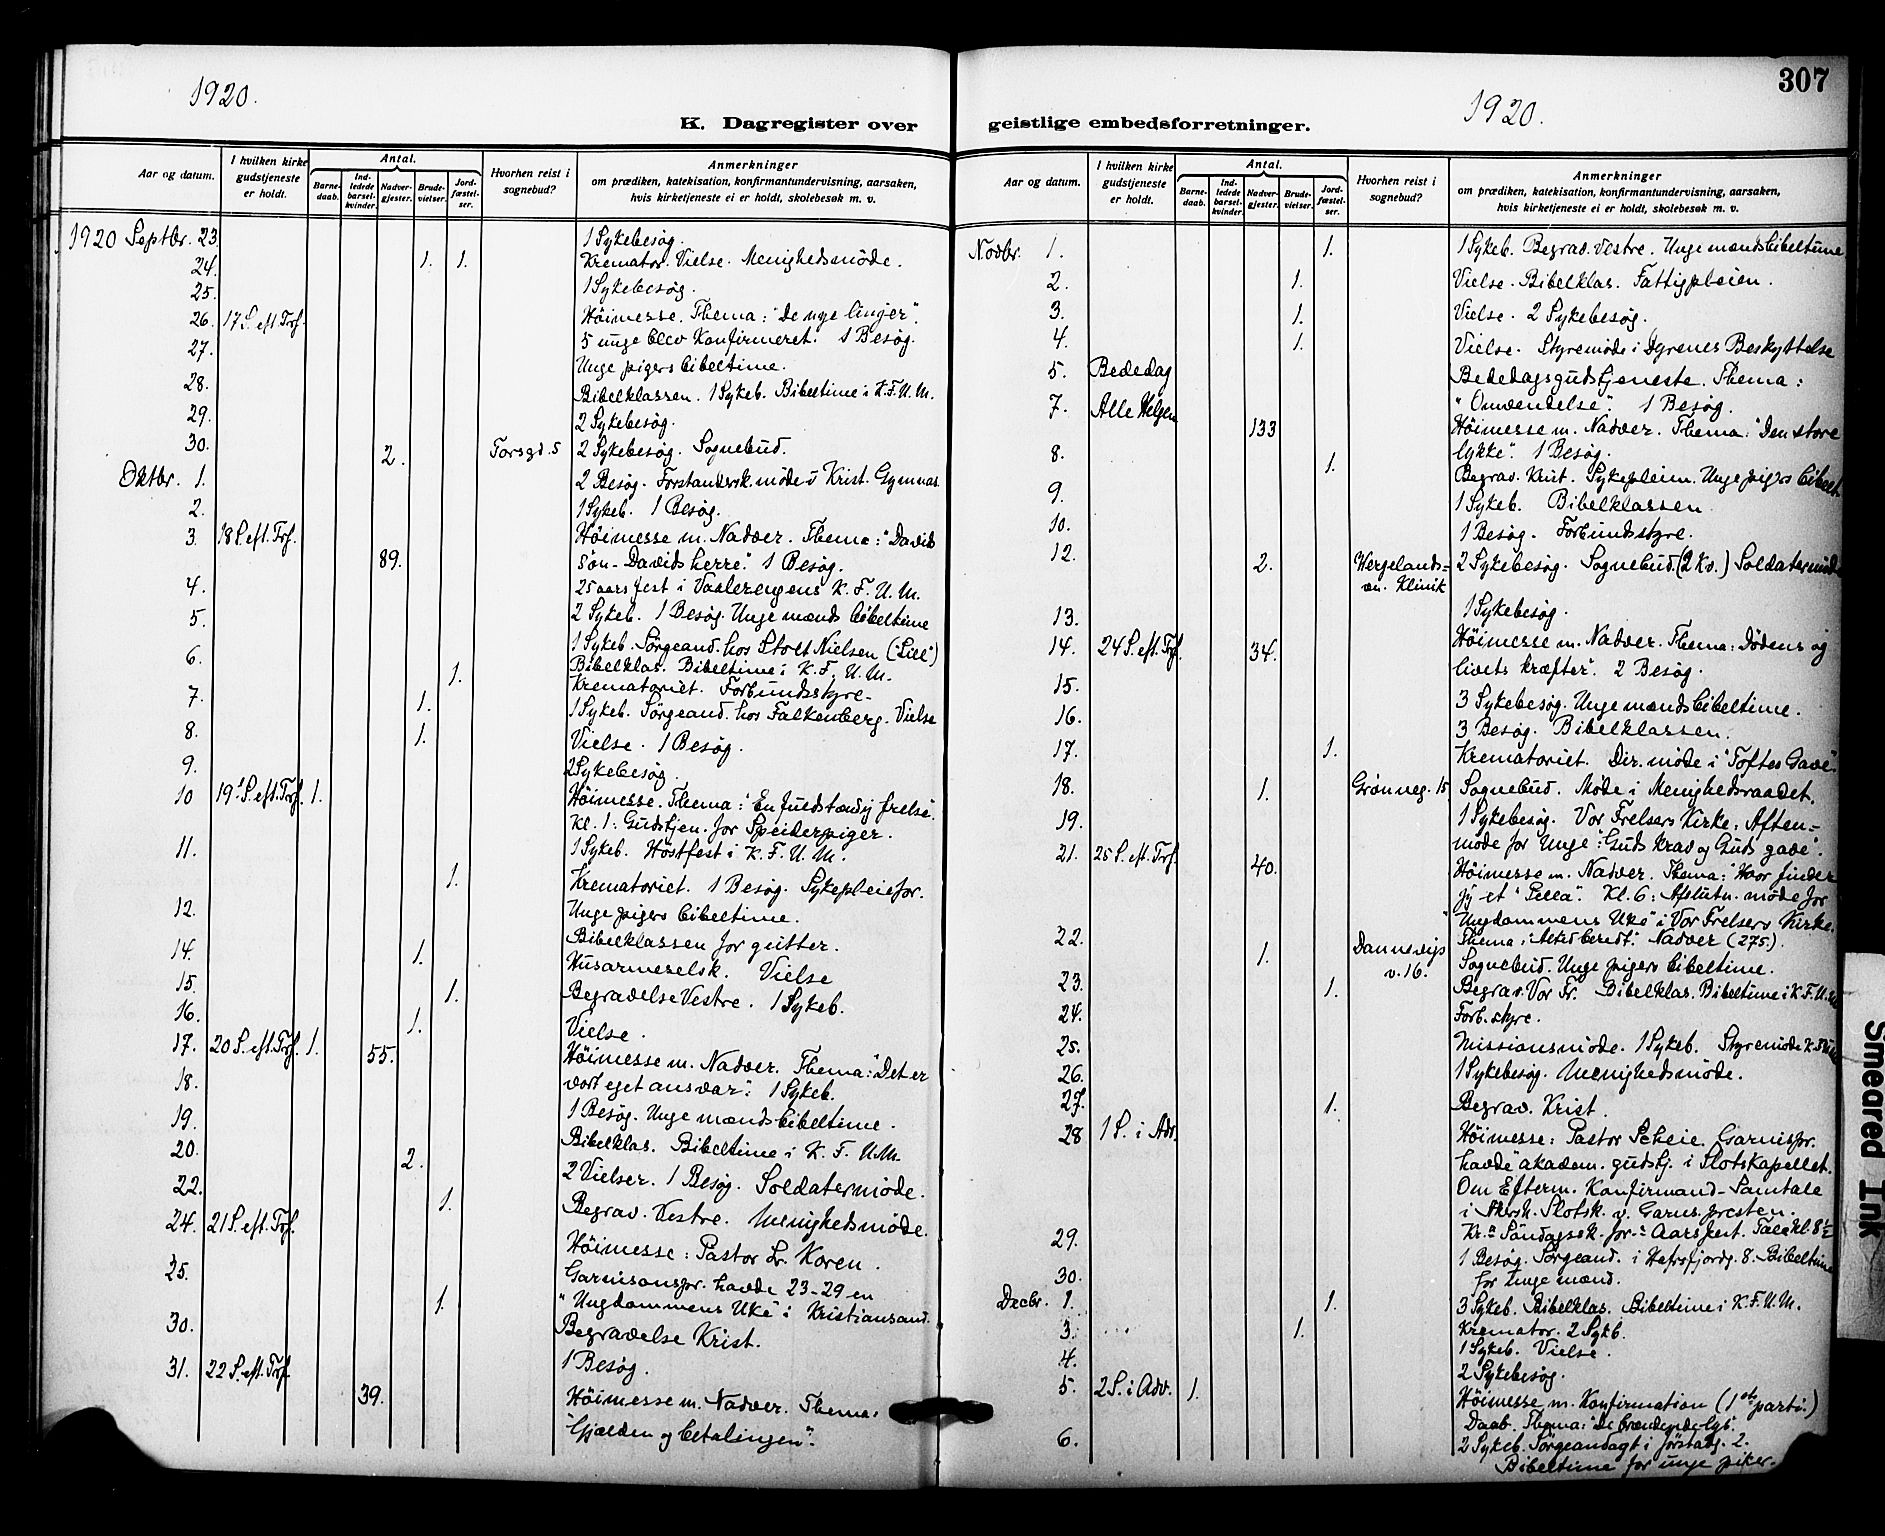 307
1920.
1920.
K. Dagregister over geistlige embedsforretninger.
Aar og datum. I hvilken kirke gudstjeneste er holdt. Antal. Barnedaab. Indledede barselkvinder. Nadvergjester. Brudevielser. Jordfæstelser. Hvorhen reist i sognebud? Anmerkninger om prædiken, katekisation, konfirmantundervisning, aarsaken, hvis kirketjeneste ei er holdt, skolebesøk m. v.
1920 Septbr. 23. 1 Sykebesøg.
24. 1. 1. Kremator. Vielse. Menighedsmøde.
25. 1 Sykebesøg.
26. 17 S. eft. Trf. Höimesse. Thema: "De nye linjer".
27. 5 unge blev Konfirmeret. 1 Besøg.
Unge pigers bibeltime.
28. Bibelklassen. 1 Sykeb. Bibeltime i K.F.U.M.
29. 2 Sykebesøg.
30. 2. Torsgd. 5 2 Sykebesøg. Sognebud.
Oktbr. 1. 2 Besøg. Forstandersk. møde i Krist. Gymnas
2. 1 Sykeb. 1 Besøg.
3. 18 S. eft. Trf. 89. Höimesse m. Nadver. Thema: "Davids
søn - Davids herre". 1 Besøg.
4. 25 aars fest i Vaalerengens K. F. U. M.
5. 2 Sykeb. 1 Besøg. Unge mænds bibeltime
1 Sykeb. Sørgeand. hos Stolt Nielsen ("Lill")
6. 1. Bibelklas. Bibeltime i K. F. U. M.
Krematoriet. Forbundsstyre-
7. 1. 1 Sykeb. Sørgeand. hos Falkenberg. Vielse
8. 1. Vielse. 1 Besøg.
9. 2 Sykebesøg.
10 19. S. eft. Trf. 1. Höimesse. Thema: "En fuldstændig frelse".
Kl. 1: Gudstjen. for Speiderpiger.
11. 1 Sykeb. Höstfest i K. F. U. M.
1. Krematoriet. 1 Besøg. Sykepleiefor.
12. Unge pigers bibeltime.
Bibelklassen for gutter.
14. 1. Husarmeselsk. Vielse
15. 1. Begravelse Vestre. 1 Sykeb.
16. 1. Vielse.
17. 20 S. eft. Trf. 1. 55. Höimesse m. Nadver. Thema: "Det er
18. vort eget ansvar". 1 Sykeb.
1 Besøg. Unge mænds bibeltime.
19. Bibelklas. Bibeltime i K. F. U.M.
20. 2. 2 Vielser. 1 Besøg. Soldatermøde.
22. 1. Begrav. Vestre. Menighedsmøde.
24. 21 S. eft. Trf. Höimesse: Pastor Dr. Koren.
25. Garnisonspr. havde 23-29 en
"Ungdommens Uke" i Kristiansand.
30. 1. Begravelse Krist.
1 Besøg.
31. 22 S. eft. Trf. 39. Höimesse m. Nadver. Thema:
"Gjælden og betalingen".
Aar og datum. I hvilken kirke gudstjeneste er holdt. Antal. Barnedaab. Indledede barselkvinder. Nadvergjester. Brudevielser. Jordfæstelser. Hvorhen reist i sognebud? Anmerkninger om prædiken, katekisation, konfirmantundervisning, aarsaken, hvis kirketjeneste ei er holdt, skolebesøk m. v.
Novbr. 1. 1. 1 Sykeb. Begrav. Vestre. Unge mænds bibeltime
2. 1. Vielse. Bibelklas. Fattigpleien.
3. 1. Vielse. 2 Sykebesøg.
4. 1. Vielse. Styremøde i Dyrenes Beskyttelse
5. Bededag Bededagsgudstjeneste. Thema:
"Omvendelse". 1 Besøg.
7. Alle Helgen 133 Höimesse m. Nadver. Thema: "Den store
lykke". 1 Besøg.
8. 1. Begrav. Krist. Sykepleien. Unge pigers bibelt.
9. 1 Sykeb. Bibelklassen.
10. 1 Besøg. Forbundsstyre.
12. 2. Wergelands- 2 Sykebesøg. Sognebud (2 Kv.) Soldatermøde
vn. Klinik
13. 1 Sykebesøg.
14. 24 S. eft. Trf. 34. Höimesse m. Nadver. Thema: Dödens og
livets kræfter". 2 Besøg.
15. 3 Sykebesøg. Unge mænds bibeltime.
16. 3 Besøg. Bibelklassen.
17. 1. Krematoriet. Dir. møde i "Toftes Gave".
18. 1. Grønneg. 15. Sognebud. Møde i Menighedsraadet.
19. 1 Sykebesøg. Vor Frelsers Kirke: Aften-
møde for Unge: "Guds krav og Guds gave".
21. 25 S. eft. Trf. 40. Höimesse m. Nadver. Thema: "Hvor finder
jeg et "Pella". Kl. 6: Afslutn. møde for
"Ungdommens Uke" i Vor Frelsers Kirke.
Thema: "Altid beredt". Nadver (275).
22. 1. Dannevigs v. 16. Sognebud. Unge pigers bibeltime.
23. 1. Begrav. Vor Fr. Bibelklas. Bibeltime i K.F.U.M.
24. Forb. styre.
25. Missionsmøde. 1 Sykeb. Styremøde
26. 1 Sykebesøg. Menighedsmøde.
27. 1. Begrav. Krist.
28 1 S. i Adv. Höimesse: Pastor Scheie. Garnispr.
havde akadem. gudstj. i Slotskapellet.
Om Efterm. Konfirmand-Samtale
i Akersh. Slotsk. v. Garns. presten.
Kr.a Søndagssk. for.s Aarsfest. Tale kl. 8 1/2
29. 1 Besøg. Sørgeand. i Hafrsfjordg. 8. Bibeltime
for unge mænd.
30. 3 Sykeb. Bibelklas. Bibeltime i K.F.U.M.
Decbr. 1. 1. Kremator. 2 Sykb.
3. 1. 1 Sykeb. Vielse.
4. 2 Sykebesøg.
5. 2 S. i Adv. 1. Höimesse m. Konfirmation (1ste parti.)
Daab. Thema: "De brændende lys".
6. 2 Sykeb. Sørgeandagt i Jørstadg. 2.
Bibeltime for unge piker.
Smeared Ink